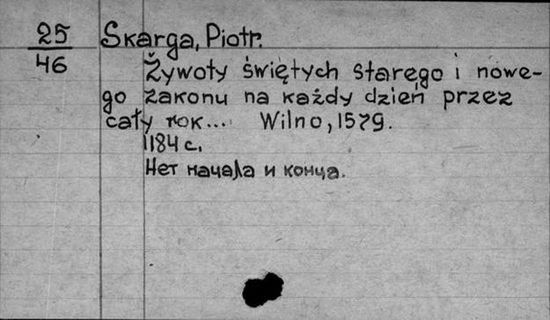 25 Skarga, Piotr.
46 Żywoty świętych starego i nowe-
go zakonu na każdy dzień przez
cały rok... Wilno, 1579.
1184 с.
Нет начала и конца.